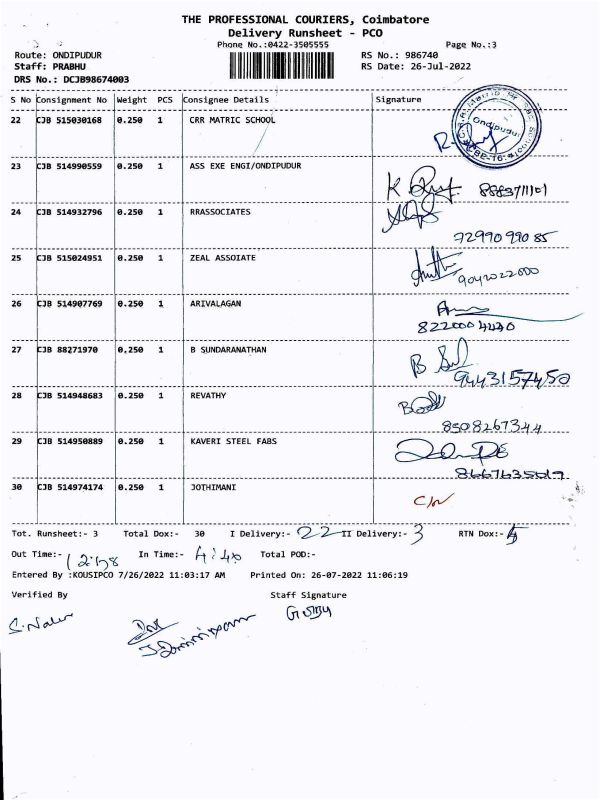 THE PROFESSIONAL COURIERS, Coimbatore
Delivery Runsheet - PCO
Phone No.:0422-3505555 Page No.:3
Route: ONDIPUDUR RS No.: 986740
Staff: PRABHU RS Date: 26-Jul-2022
DRS No.: DCJB98674003
S No Consignment No Weight PCS Consignee Details Signature
22 CJB 515030168 0.250 1 CRR MATRIC SCHOOL
Ondipudur
23 CJB 514990559 0.250 1 ASS EXE ENGI/ONDIPUDUR
24 CJB 514932796 0.250 1 RRASSOCIATES
72990 990 85
25 CJB 515024951 0.250 1 ZEAL ASSOIATE
9042022000
26 CJB 514907769 0.250 1 ARIVALAGAN
27 CJB 88271970 0.250 1 B SUNDARANATHAN
9443157450
28 CJB 514948683 0.250 1 REVATHY
8508267344
29 CJB 514950889 0.250 1 KAVERI STEEL FABS
8667635019
30 CJB 514974174 0.250 1 JOTHIMANI
Tot. Runsheet:- 3 Total Dox:- 30 I Delivery:- 22 II Delivery:- 3 RTN Dox:- 5
Out Time:- In Time:- 4:40 Total POD:-
Entered By :KOUSIPCO 7/26/2022 11:03:17 AM Printed On: 26-07-2022 11:06:19
Verified By Staff Signature